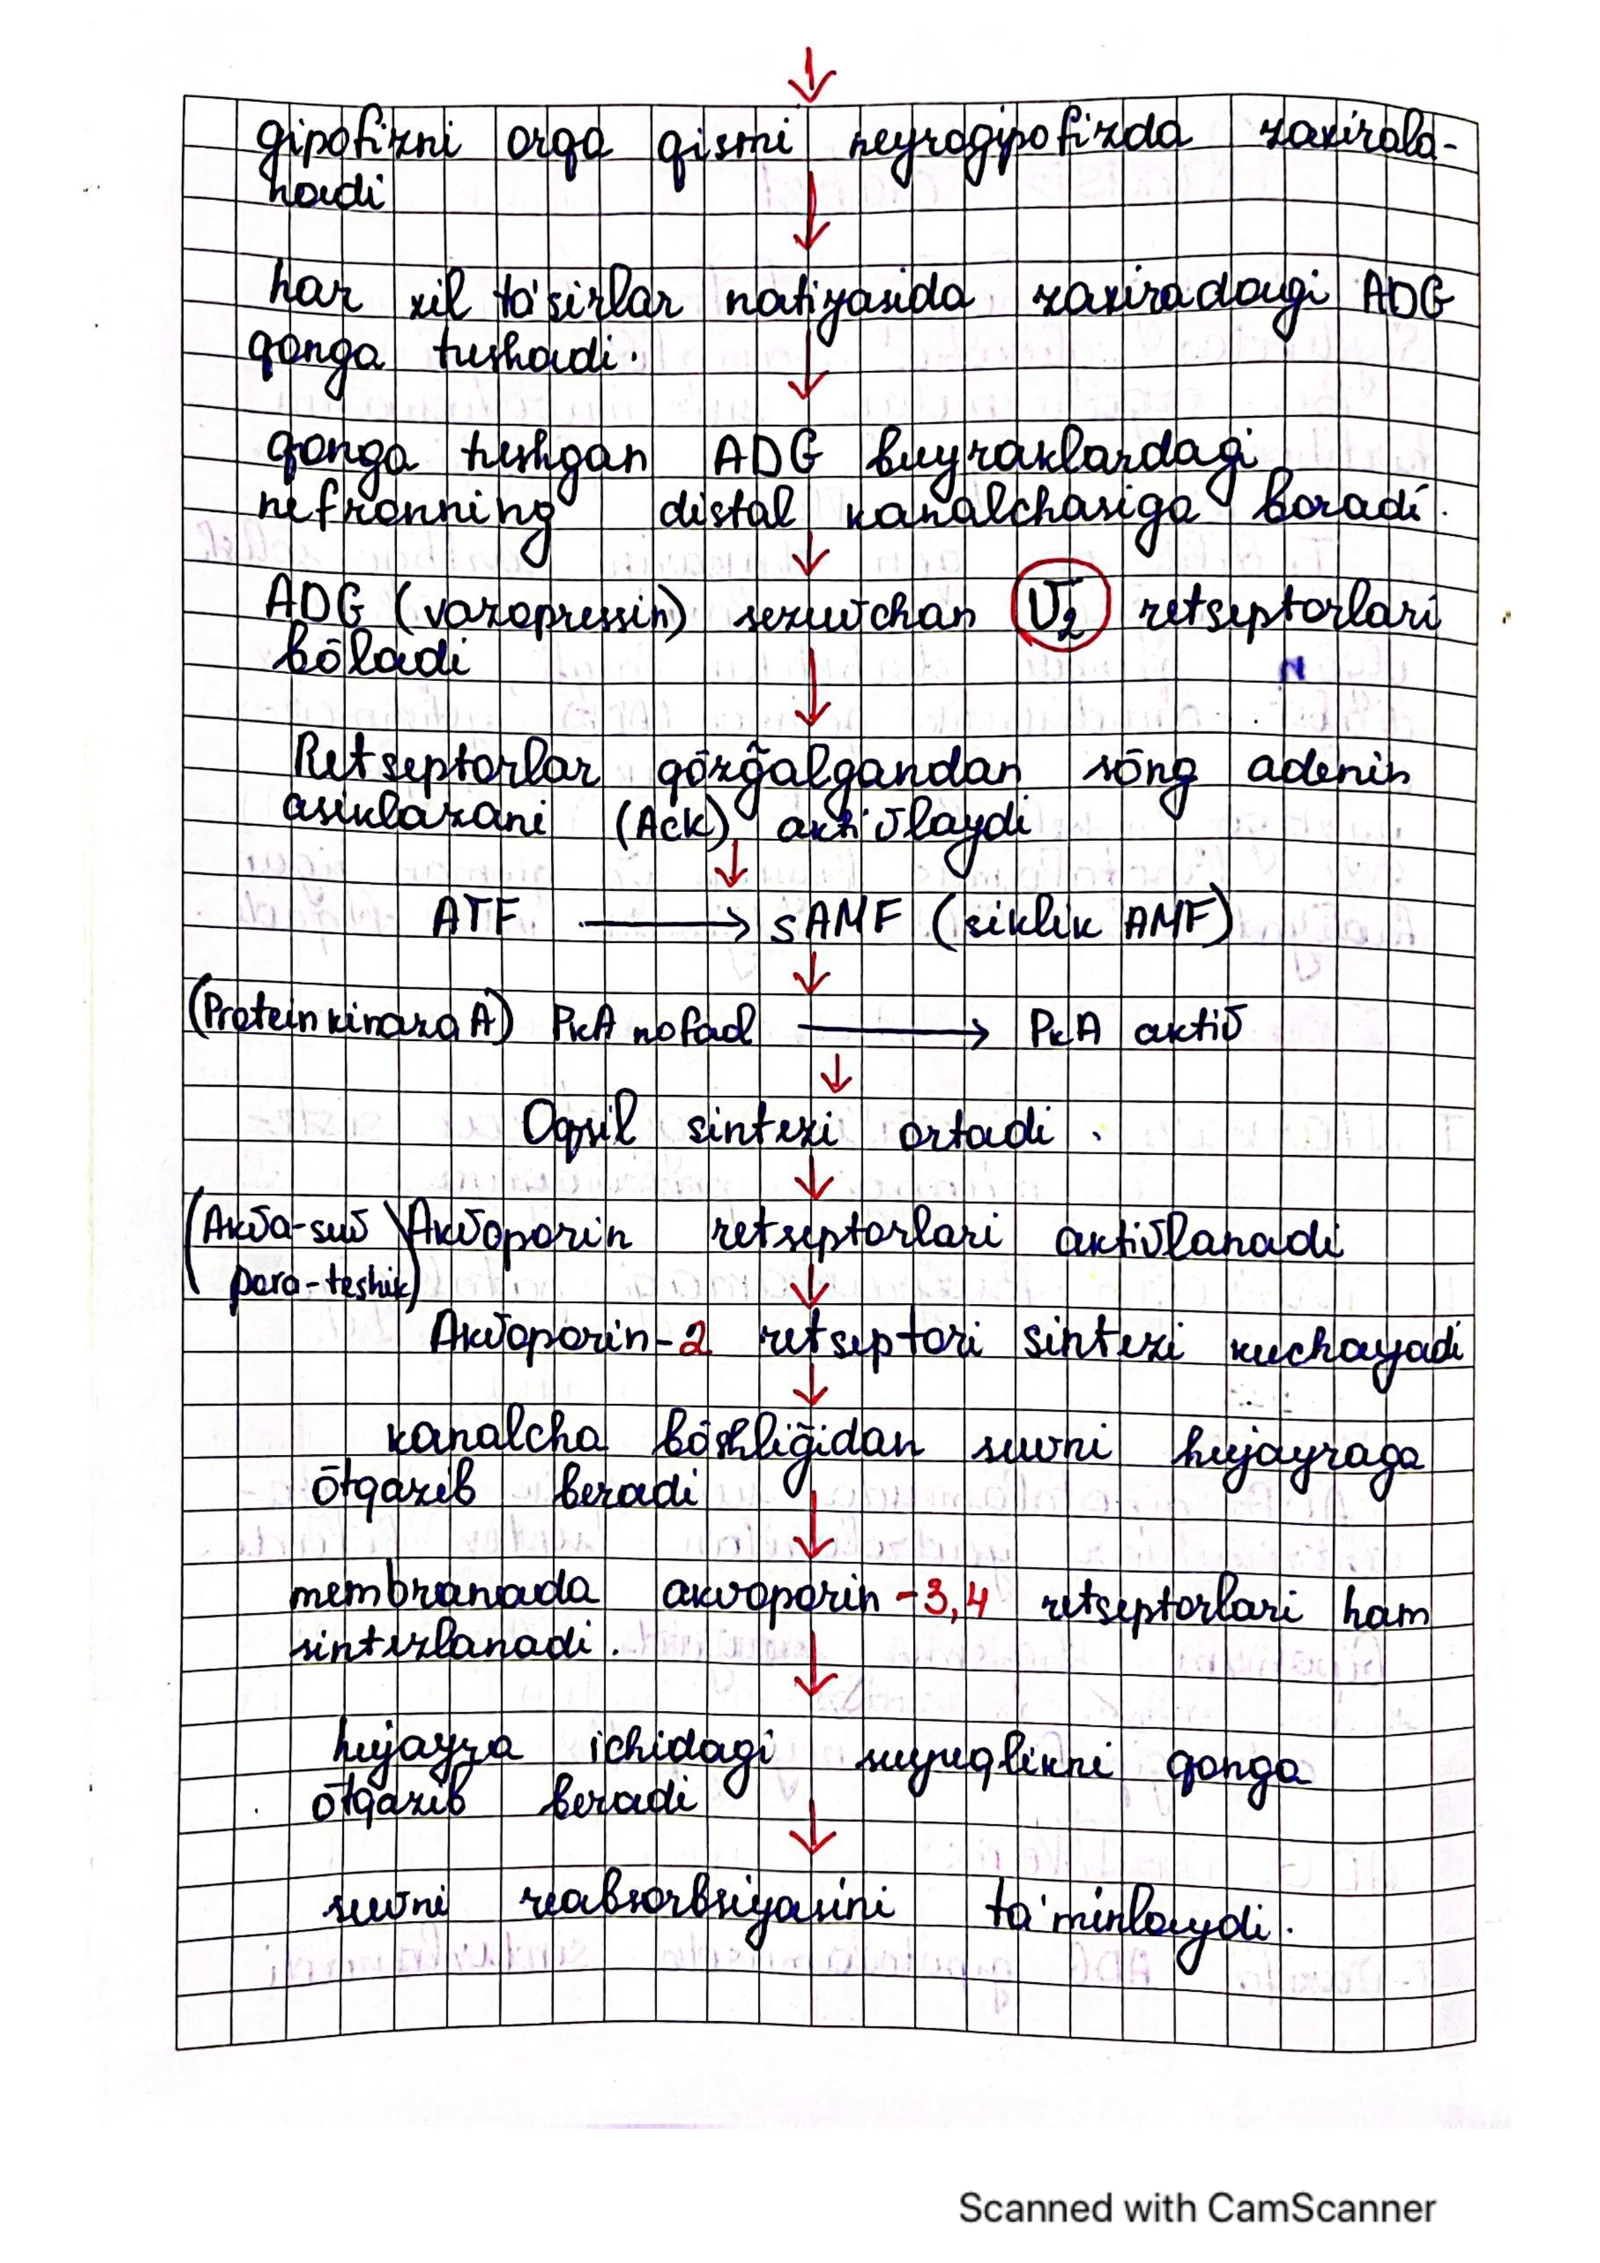 gipofizni orqa qismi neyrogipofizda zaxirala-
nadi
har xil ta'sirlar natijasida zaxiradagi ADG
qonga tushadi.
qonga tushgan ADG buyraklardagi
nefronning distal kanalchasiga boradi.
ADG (vazopressin) sezuvchan V2 retseptorlari
bōladi
Retseptorlar qōzg̃algandan sōng adenin
asiklazani (Ack) aktivlaydi
ATF → sAMF (siklik AMF)
(Protein kinaza A) PkA nofaol → PkA aktiv
Oqsil sintezi ortadi.
(Akva-suv Akvoporin retseptorlari aktivlanadi
pora-teshik)
Akvoporin-2 retseptori sintezi kuchayadi
kanalcha bōshlig̃idan suvni hujayraga
ōtqazib beradi
membranada akvoporin-3,4 retseptorlari ham
sintezlanadi.
hujayra ichidagi suyuqlikni qonga
ōtqazib beradi
suvni reabsorbsiyasini ta'minlaydi.
Scanned with CamScanner